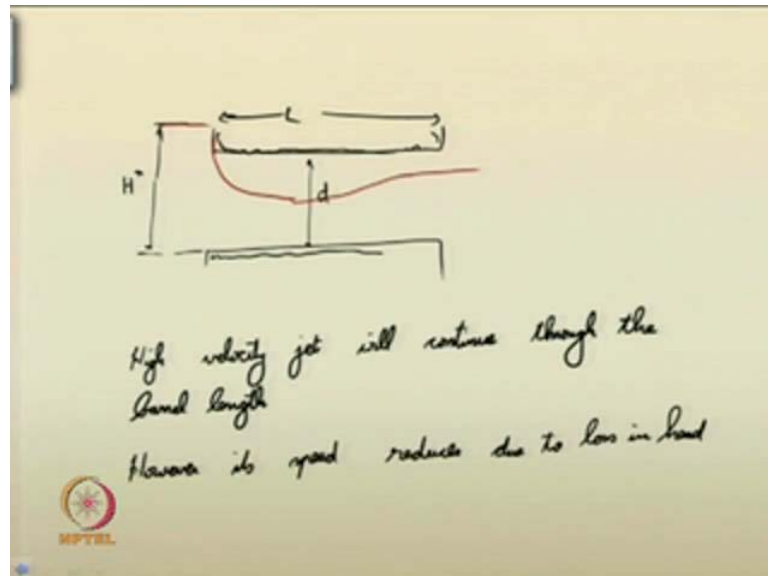 L
H*
d
High velocity jet will continue through the
barrel length
However its speed reduces due to loss in head
NPTEL